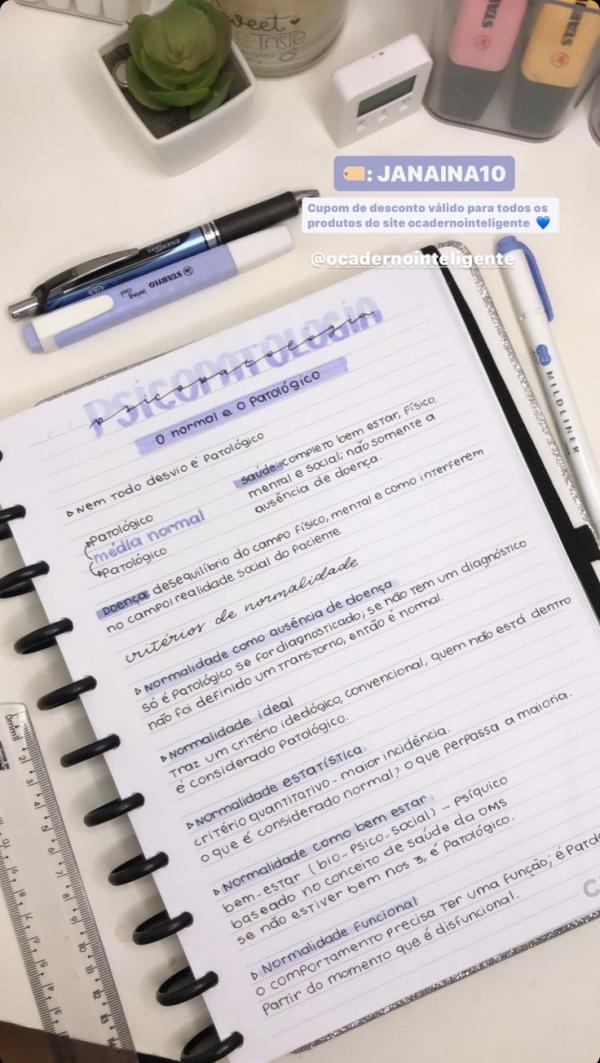 Sweet
TASTE
STABI
STABI
: JANAINA10
Cupom de desconto válido para todos os
produtos do site ocadernointeligente 💙
@ocadernointeligente
ENERGEL
STABILO swing cool
MILDLINER
PSICOPATOLOGIA
psicopatologia
O normal e o Patológico
▹ Nem todo desvio é Patológico
saúde: completo bem estar, físico,
mental e social; não somente a
ausência de doença.
Patológico
média normal
Patológico
Doença: desequilíbrio do campo físico, mental e como interferem
no campo/realidade social do paciente
critérios de normalidade
▹ Normalidade como ausência de doença
só é Patológico se for diagnosticado; se não tem um diagnóstico
não foi definido um transtorno, então é normal.
▹ Normalidade ideal
Traz um critério ideológico, convencional, quem não está dentro
é considerado Patológico.
▹ Normalidade estatística
critério quantitativo - maior incidência.
o que é considerado normal? o que perpassa a maioria.
▹ Normalidade como bem estar
bem-estar (bio-psico-social) – Psíquico
baseado no conceito de saúde da OMS
se não estiver bem nos 3, é Patológico.
▹ Normalidade Funcional
o comportamento precisa ter uma função; é Pato
Partir do momento que é disfuncional.